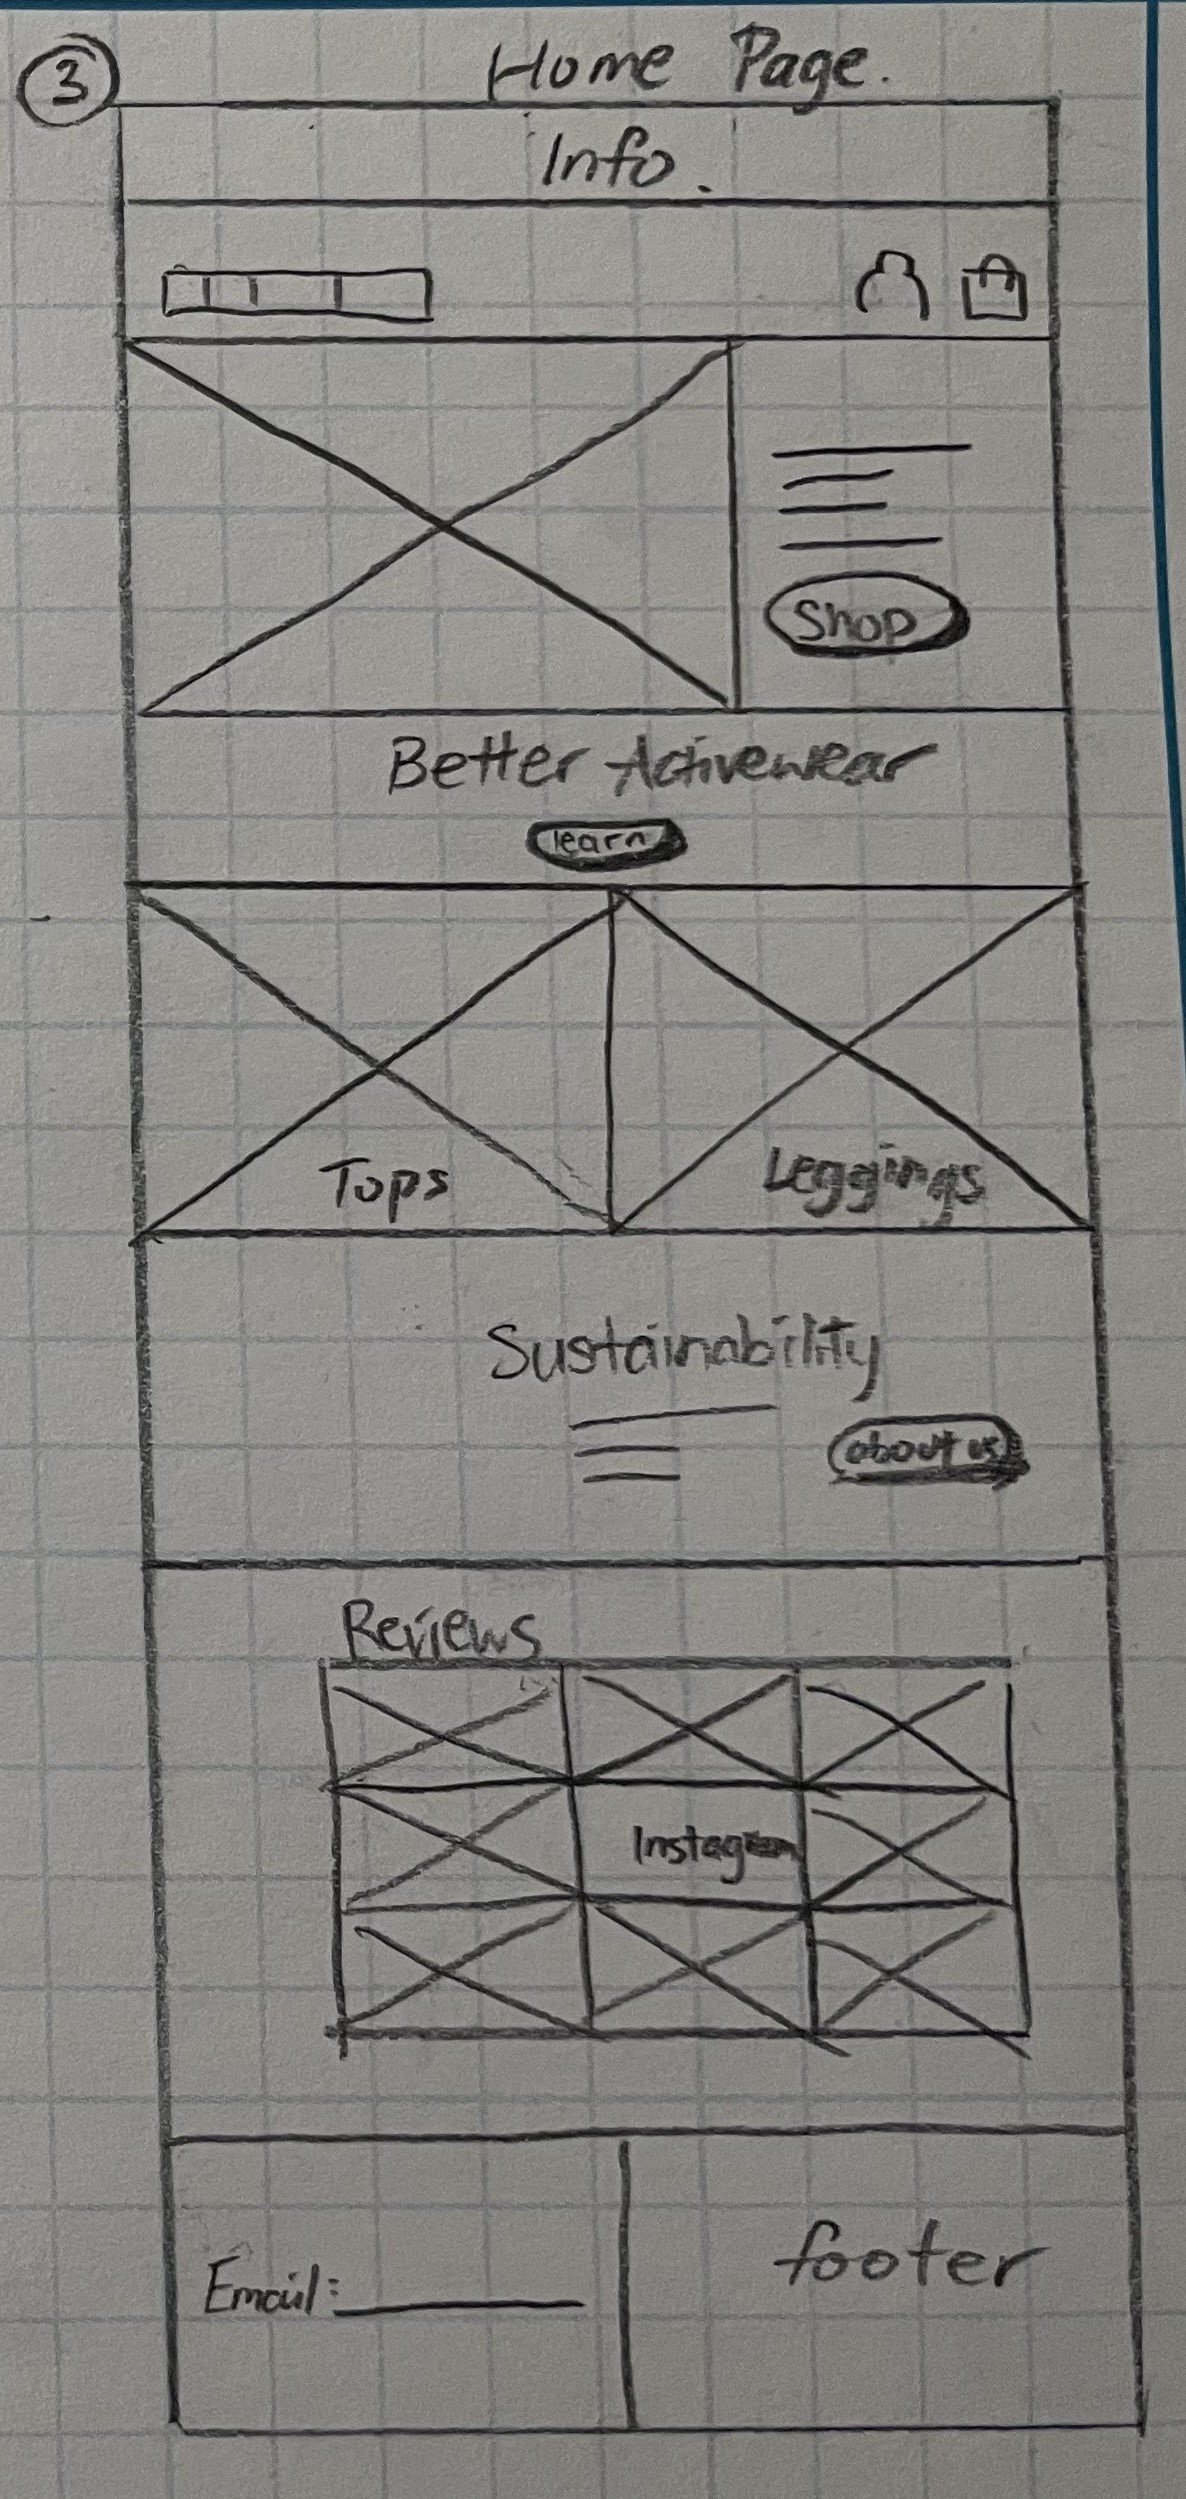 3
Home Page.
Info.
Shop
Better Activewear
learn
Tops
Leggings
Sustainability
about us
Reviews
Instagram
Email:
footer